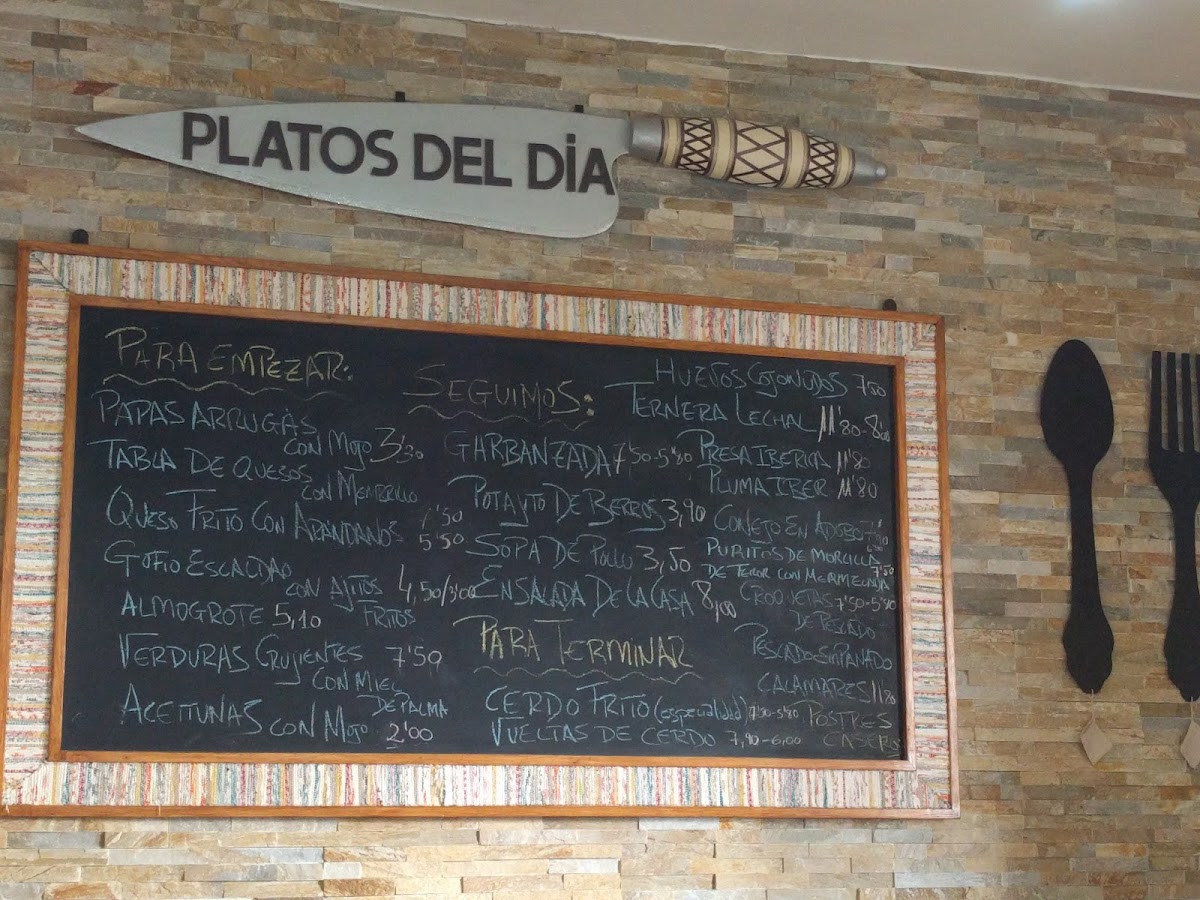 PLATOS DEL DÍA
PARA EMPEZAR:
PAPAS ARRUGÁS
CON MOJO 3'30
TABLA DE QUESOS
CON MEMBRILLO
7'50
QUESO FRITO CON ARANDANOS
5'50
GOFIO ESCALDAO
CON AJITOS 4,50/3'00
FRITOS
ALMOGROTE 5,10
VERDURAS CRUJIENTES 7'50
CON MIEL
DE PALMA
ACEITUNAS CON MOJO 2'00
SEGUIMOS:
GARBANZADA 7'50-5'80
POTAJITO DE BERROS 3,90
SOPA DE POLLO 3,50
ENSALADA DE LA CASA 8,00
PARA TERMINAR
CERDO FRITO (especialidad) 7'50-5'80
VUELTAS DE CERDO 7,90-6,00
HUEVOS COJONUDOS 7'50
TERNERA LECHAL 11'80-8'00
PRESA IBERICA 11'80
PLUMA IBER 11'80
CONEJO EN ADOBO
PURITOS DE MORCILLA
DE TEROR CON MERMELADA 7'50
CROQUETAS 7'50-5'80
DE PESCADO
PESCADO EMPANADO
CALAMARES 11'80
POSTRES
CASEROS